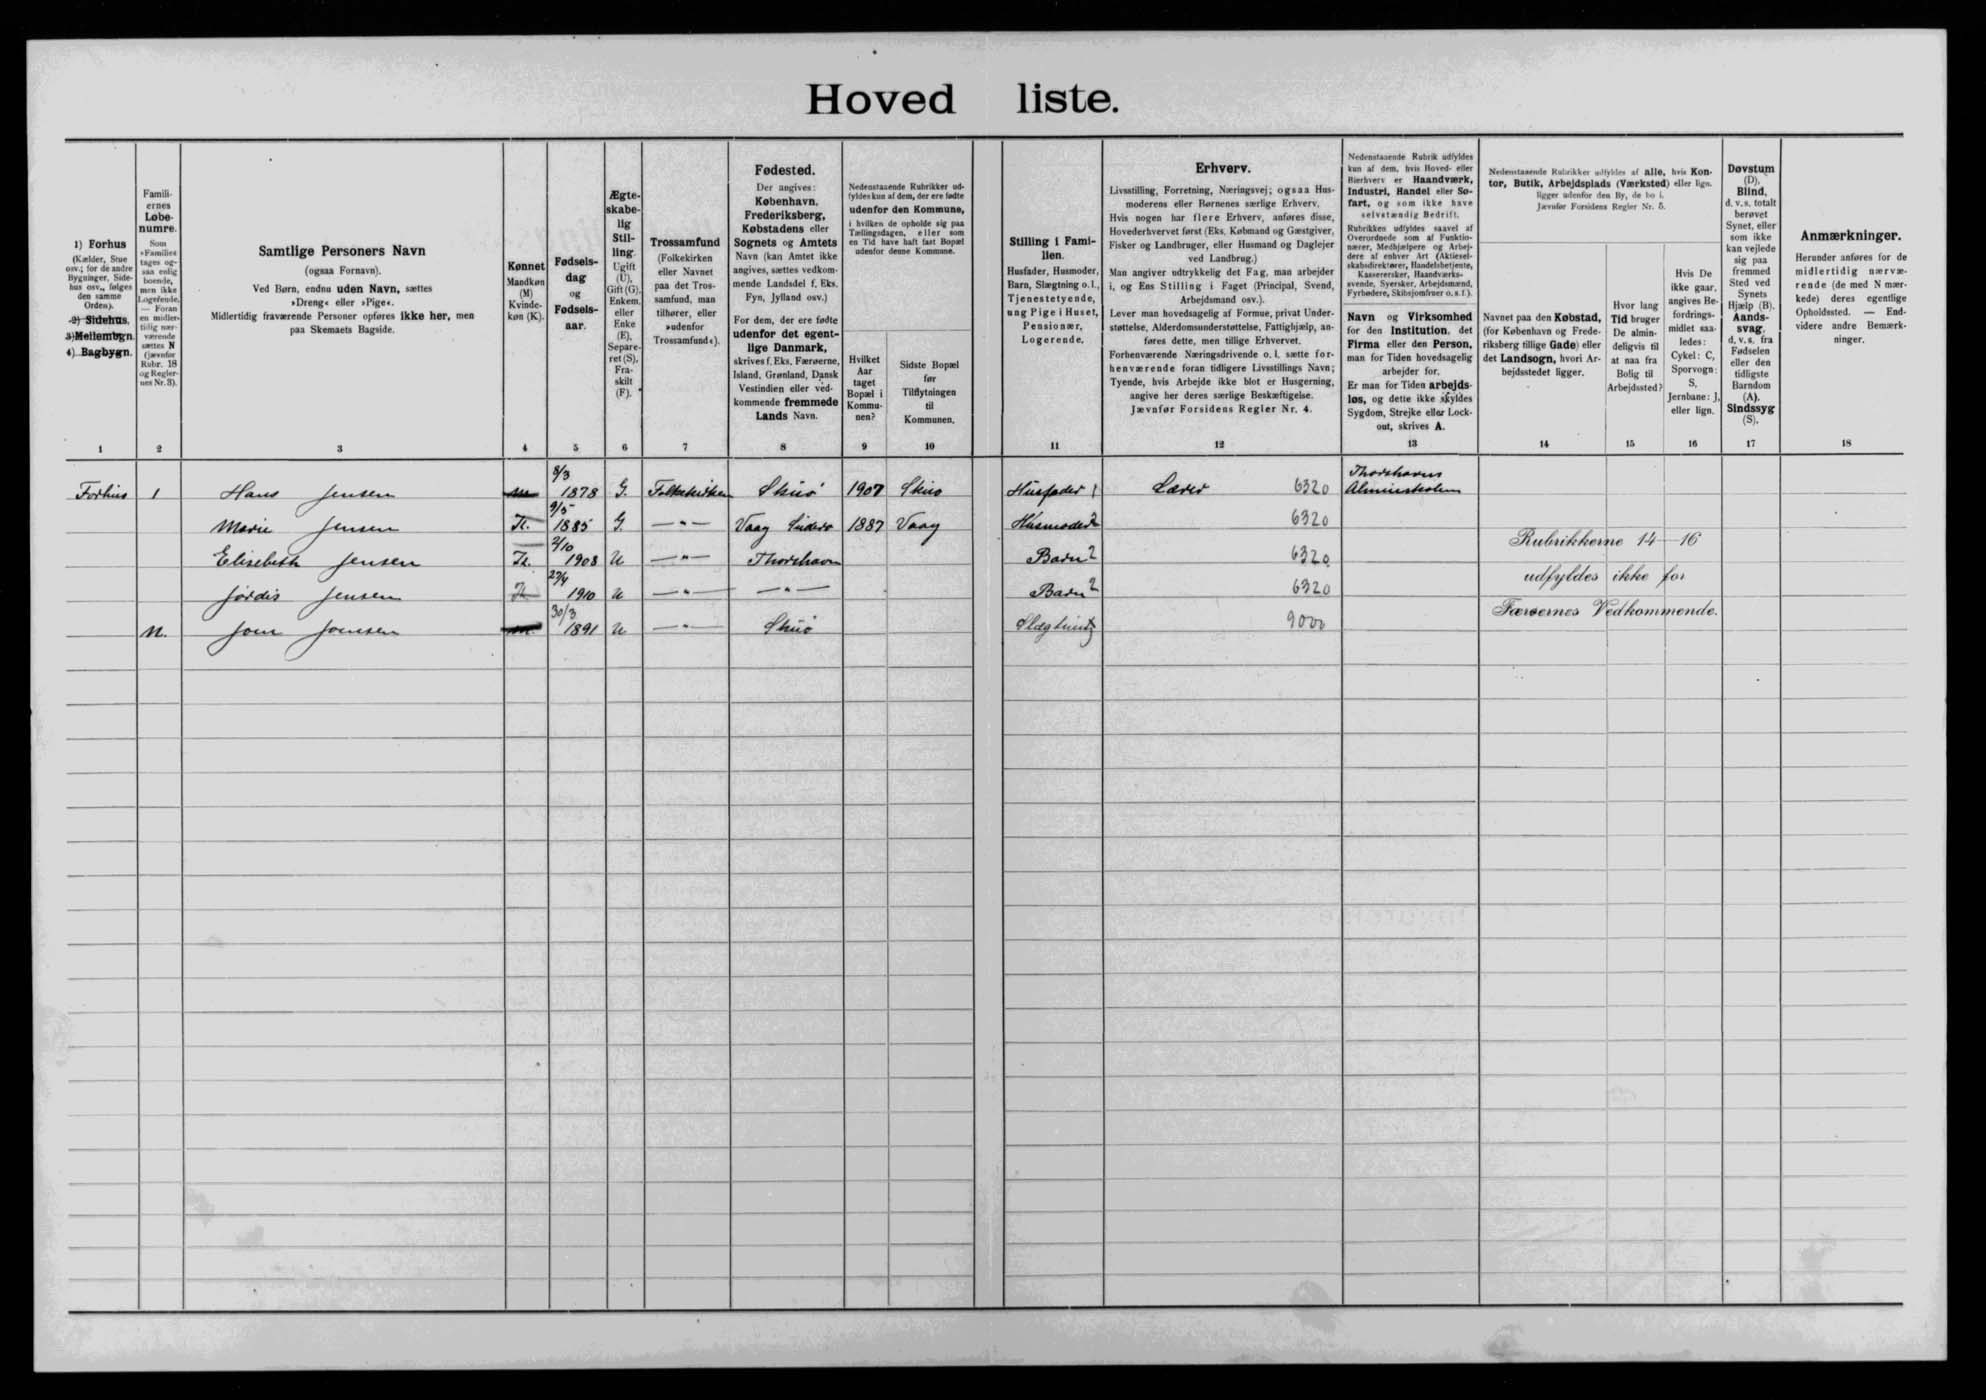 Hoved liste.
1) Forhus
(Kælder, Stue
osv.; for de andre
Bygninger, Side-
hus osv., følges
den samme
Orden).
2) Sidehus,
3) Mellembgn.
4) Bagbygn.
1
Famili-
ernes
Løbe-
numre.
Som
»Familie«
tages og-
saa enlig
boende,
men ikke
Logerende.
— Foran
en midler-
tidig nær-
værende
sættes N
(jævnfør
Rubr. 18
og Regler-
nes Nr. 3).
2
Samtlige Personers Navn
(ogsaa Fornavn).
Ved Børn, endnu uden Navn, sættes
»Dreng« eller »Pige«.
Midlertidig fraværende Personer opføres ikke her, men
paa Skemaets Bagside.
3
Kønnet
Mandkøn
(M)
Kvinde-
køn (K).
4
Fødsels-
dag
og
Fødsels-
aar.
5
Ægte-
skabe-
lig
Stil-
ling.
Ugift
(U),
Gift (G),
Enkem.
eller
Enke
(E),
Separe-
ret (S),
Fra-
skilt
(F).
6
Trossamfund
(Folkekirken
eller Navnet
paa det Tros-
samfund, man
tilhører, eller
»udenfor
Trossamfund«).
7
Fødested.
Der angives:
København,
Frederiksberg,
Købstadens eller
Sognets og Amtets
Navn (kan Amtet ikke
angives, sættes vedkom-
mende Landsdel f. Eks.
Fyn, Jylland osv.)
For dem, der ere fødte
udenfor det egent-
lige Danmark,
skrives f. Eks. Færøerne,
Island, Grønland, Dansk
Vestindien eller ved-
kommende fremmede
Lands Navn.
8
Nedenstaaende Rubrikker ud-
fyldes kun af dem, der ere fødte
udenfor den Kommune,
i hvilken de opholde sig paa
Tællingsdagen, eller som
en Tid have haft fast Bopæl
udenfor denne Kommune.
Hvilket
Aar
taget
Bopæl i
Kommu-
nen?
9
Sidste Bopæl
før
Tilflytningen
til
Kommunen.
10
Stilling i Fami-
lien.
Husfader, Husmoder,
Barn, Slægtning o.l.,
Tjenestetyende,
ung Pige i Huset,
Pensionær,
Logerende.
11
Erhverv.
Livsstilling, Forretning, Næringsvej; ogsaa Hus-
moderens eller Børnenes særlige Erhverv.
Hvis nogen har flere Erhverv, anføres disse,
Hovederhvervet først (Eks. Købmand og Gæstgiver,
Fisker og Landbruger, eller Husmand og Daglejer
ved Landbrug.)
Man angiver udtrykkelig det Fag, man arbejder
i, og Ens Stilling i Faget (Principal, Svend,
Arbejdsmand osv.).
Lever man hovedsagelig af Formue, privat Under-
støttelse, Alderdomsunderstøttelse, Fattighjælp, an-
føres dette, men tillige Erhvervet.
Forhenværende Næringsdrivende o. l. sætte for-
henværende foran tidligere Livsstillings Navn;
Tyende, hvis Arbejde ikke blot er Husgerning,
angive her deres særlige Beskæftigelse.
Jævnfør Forsidens Regler Nr. 4.
12
Nedenstaaende Rubrik udfyldes
kun af dem, hvis Hoved- eller
Bierhverv er Haandværk,
Industri, Handel eller Sø-
fart, og som ikke have
selvstændig Bedrift.
Rubrikken udfyldes saavel af
Overordnede som af Funktio-
nærer, Medhjælpere og Arbej-
dere af enhver Art (Aktiesel-
skabsdirektører, Handelsbetjente,
Kassererersker, Haandværks-
svende, Syersker, Arbejdsmænd,
Fyrbødere, Skibsjomfruer o. s. f.).
Navn og Virksomhed
for den Institution, det
Firma eller den Person,
man for Tiden hovedsagelig
arbejder for.
Er man for Tiden arbejds-
løs, og dette ikke skyldes
Sygdom, Strejke eller Lock-
out, skrives A.
13
Nedenstaaende Rubrikker udfyldes af alle, hvis Kon-
tor, Butik, Arbejdsplads (Værksted) eller lign.
ligger udenfor den By, de bo i.
Jævnfør Forsidens Regler Nr. 5.
Navnet paa den Købstad,
(for København og Frede-
riksberg tillige Gade) eller
det Landsogn, hvori Ar-
bejdsstedet ligger.
14
Hvor lang
Tid bruger
De almin-
deligvis til
at naa fra
Bolig til
Arbejdssted?
15
Hvis De
ikke gaar,
angives Be-
fordrings-
midlet saa-
ledes:
Cykel: C,
Sporvogn:
S,
Jernbane: J,
eller lign.
16
Døvstum
(D),
Blind,
d. v. s. totalt
berøvet
Synet, eller
som ikke
kan vejlede
sig paa
fremmed
Sted ved
Synets
Hjælp (B).
Aands-
svag,
d. v. s. fra
Fødselen
eller den
tidligste
Barndom
(A).
Sindssyg
(S).
17
Anmærkninger.
Herunder anføres for de
midlertidig nærvæ-
rende (de med N mær-
kede) deres egentlige
Opholdssted. — End-
videre andre Bemærk-
ninger.
18
Forhus 1 Hans Jensen M 8/3 1878 G. Folkekirken Skuö 1907 Skuö Husfader 1 Lærer 6320 Thorshavns Almueskolen
Marie Jensen K. 9/5 1885 G. —"— Vaag Suderö 1887 Vaag Husmoder 2 6320
Elisebeth Jensen K. 2/10 1908 U —"— Thorshavn Barn 2 6320
Jørdis Jensen K 27/4 1910 U —"— —"— Barn 2 6320
N. Joen Joensen M. 30/3 1891 U —"— Skuö 9000
Rubrikkerne 14—16
udfyldes ikke for
Færøernes Vedkommende.